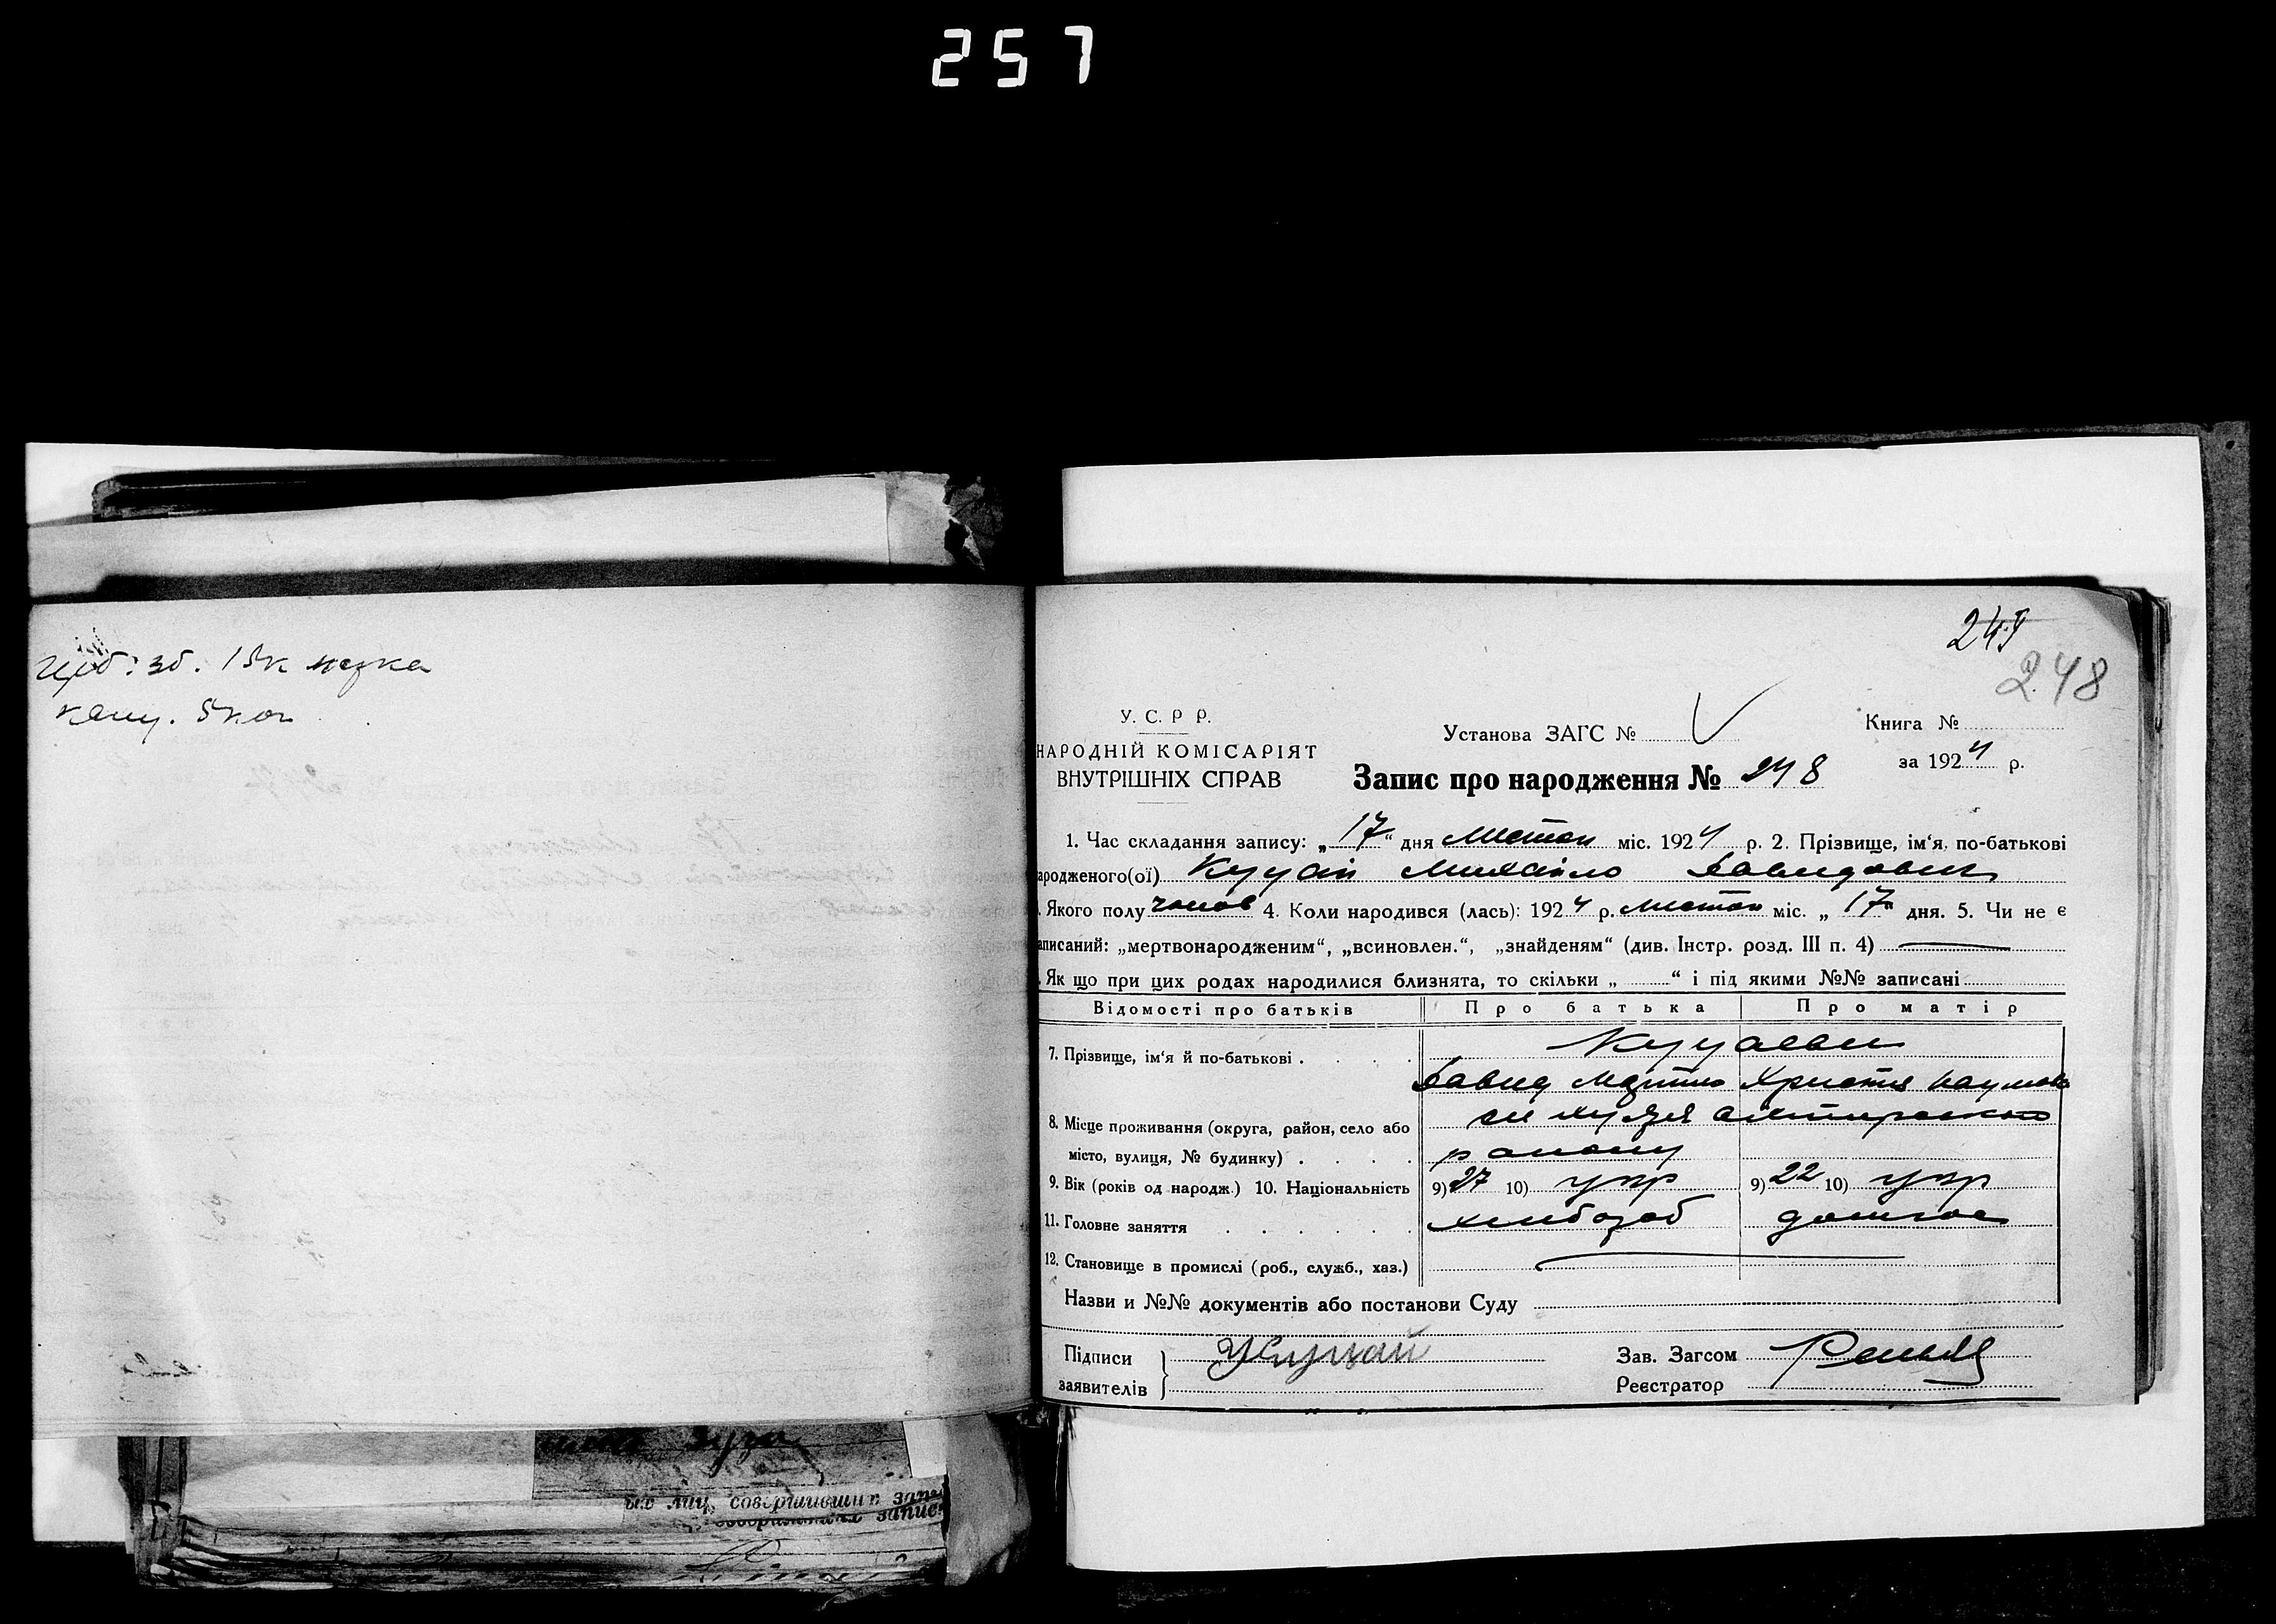 257
зб. 15к марка
канц. 5 коп
248
У. С. Р Р.
НАРОДНІЙ КОМІСАРІЯТ
ВНУТРІШНІХ СПРАВ
Установа ЗАГС №
Книга №
за 1924 р.
Запис про народження № 248
1. Час складання запису: „17“ дня Листоп міс. 1924 р. 2. Прізвище, ім‘я, по-батькові
ародженого(ої) Куцай Михайло Давидович
. Якого полу чолов 4. Коли народився (лась): 1924 р. Листоп міс. „ 17“ дня. 5. Чи не є
аписаний: „мертвонародженим“, „всиновлен.“, „знайденям“ (див. Інстр. розд. III п. 4)
. Як що при цих родах народилися близнята, то скільки „ “ і під якими №№ записані
Відомості про батьків Про батька Про матір
7. Прізвище, ім‘я й по-батькові . Куцаеви
Давид Христя Наумова
8. Місце проживання (округа, район, село або
місто, вулиця, № будинку) . району
9. Вік (років од народж.) 10. Національність 9) 27 10) укр 9) 22 10) укр
11. Головне заняття хлібороб домгос
12. Становище в промислі (роб., служб., хаз.)
Назви и №№ документів або постанови Суду
Підписи
заявителів
Зав. Загсом
Реєстратор
лиц, совершивших запи
совершивших записи